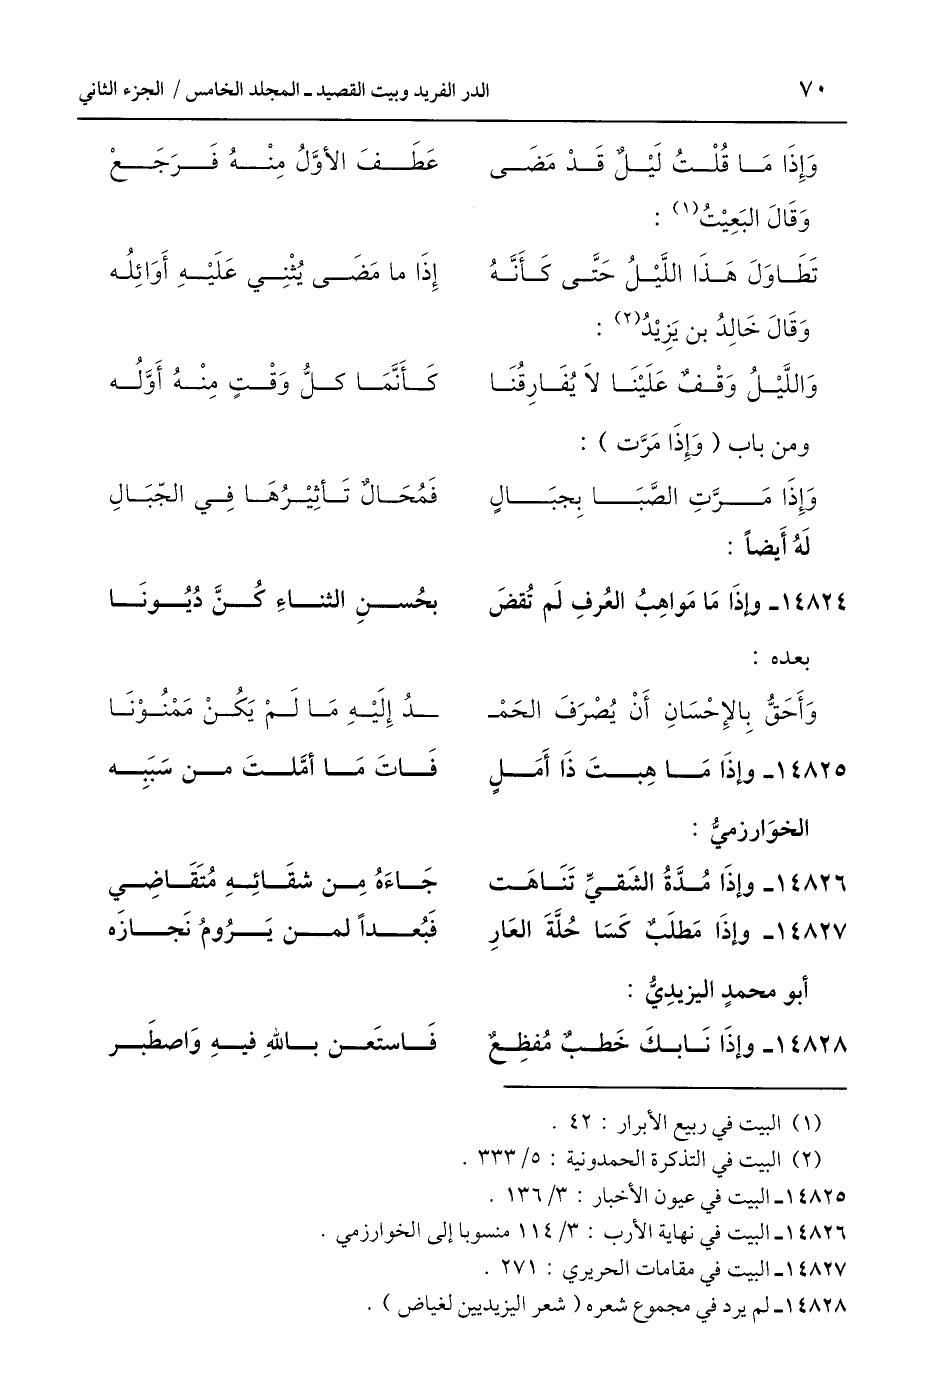 ٧٠ الدر الفريد وبيت القصيد ـ المجلد الخامس / الجزء الثاني
وَإِذَا مَا قُلْتُ لَيْلٌ قَدْ مَضَى عَطَفَ الأوَّلُ مِنْهُ فَرَجَعْ
وَقَالَ البَعِيْثُ(١) :
تَطَاوَلَ هَذَا اللَّيْلُ حَتَّى كَأَنَّهُ إِذَا ما مَضَى يُثْنِي عَلَيْهِ أَوَائِلُه
وَقَالَ خَالِدُ بن يَزِيْدُ(٢) :
وَاللَّيْلُ وَقْفٌ عَلَيْنَا لاَ يُفَارِقُنَا كَأَنَّمَا كلُّ وَقْتٍ مِنْهُ أَوَّلُه
ومن باب ( وَإِذَا مَرَّت ) :
وَإِذَا مَرَّتِ الصَّبَا بِجبَالٍ فَمُحَالٌ تَأثِيْرُهَا فِي الجّبَالِ
لَهُ أَيضاً :
١٤٨٢٤ـ وإذَا مَا مَواهِبُ العُرفِ لَم تُقضَ بحُسنِ الثناءِ كُنَّ دُيُونَا
بعده :
وَأَحَقُّ بِالإِحْسَانِ أَنْ يُصْرَفَ الحَمْـ ـدُ إِلَيْهِ مَا لَمْ يَكُنْ مَمْنُوْنَا
١٤٨٢٥ـ وإذَا مَا هِبتَ ذَا أَمَلٍ فَاتَ مَا أمَّلتَ من سَبَبِه
الخوَارزميُّ :
١٤٨٢٦ـ وإذَا مُدَّةُ الشَقيِّ تَنَاهَت جَاءَهُ مِن شقَائِهِ مُتَقَاضِي
١٤٨٢٧ـ وإذَا مَطلَبٌ كَسَا حُلَّةَ العَارِ فَبُعداً لمن يَرُومُ نَجازَه
أبو محمدٍ اليزيدِيُّ :
١٤٨٢٨ـ وإذَا نَابكَ خَطبٌ مُفظِعٌ فَاستَعن باللهِ فيهِ وَاصطَبر
(١) البيت في ربيع الأبرار : ٤٢ .
(٢) البيت في التذكرة الحمدونية : ٥/ ٣٣٣ .
١٤٨٢٥ـ البيت في عيون الأخبار : ٣/ ١٣٦ .
١٤٨٢٦ـ البيت في نهاية الأرب : ٣/ ١١٤ منسوبا إلى الخوارزمي .
١٤٨٢٧ـ البيت في مقامات الحريري : ٢٧١ .
١٤٨٢٨ـ لم يرد في مجموع شعره ( شعر اليزيديين لغياض ) .